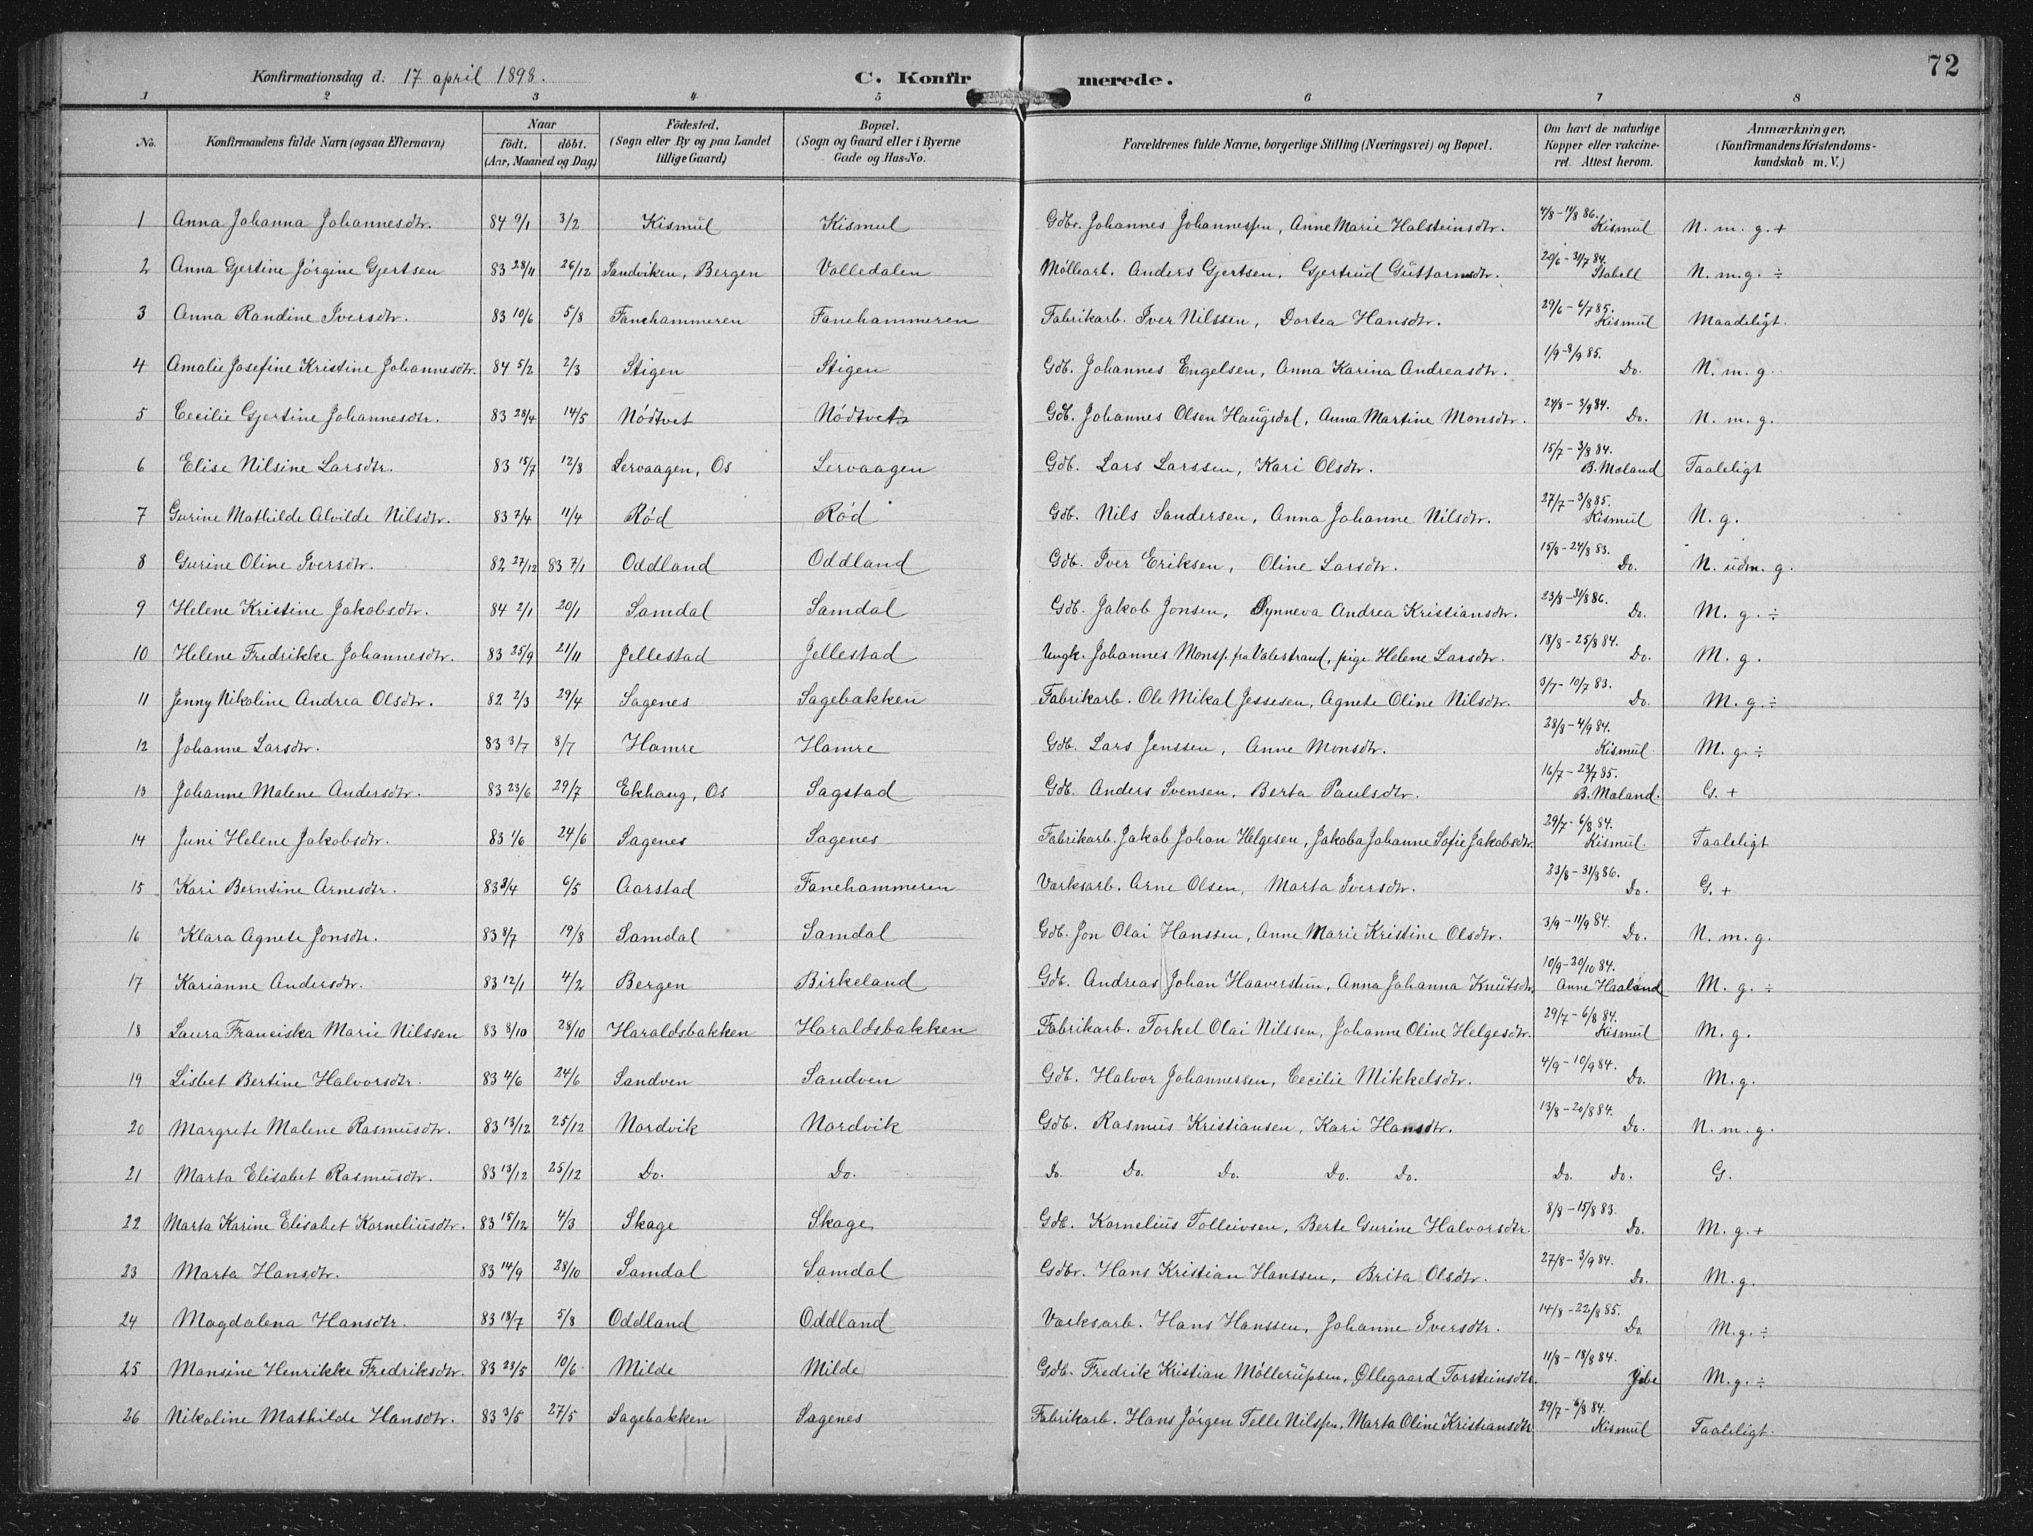 72
Konfirmationsdag d: 17 april 1898. C. Konfirmerede.
1 2 3 4 5 6 7 8
No. Konfirmandens fulde Navn (ogsaa Efternavn) Naar født. døbt. (Aar, Maaned og Dag) Fødested. (Sogn eller By og paa Landet tillige Gaard) Bopæl. (Sogn og Gaard eller i Byerne Gade og Hus-No. Forældrenes fulde Navne, borgerlige Stilling (Næringsvei) og Bopæl. Om havt de naturlige Kopper eller vakcineret. Attest herom. Anmærkninger, (Konfirmandens Kristendomskundskab m. V.)
1 Anna Johanna Johannesdtr. 84 9/1 3/2 Kismul Kismul Gdbr. Johannes Johannessen, Anne Marie Halsteinsdtr. 4/8 - 11/8 86. Kismul N. m. g. +
2 Anna Gjertine Jørgine Gjertsen 83 28/11 26/12 Sandviken, Bergen Valledalen Møllearb. Anders Gjertsen, Gjertrud Guttormsdtr. 20/6 - 31/7 84. Stabell N. m. g. ÷
3 Anna Randine Iversdtr. 83 10/6 5/8 Fanehammeren Fanehammeren Fabrikarb. Iver Nilssen, Dortea Hansdtr. 29/6 - 6/7 85. Kismul Maadeligt.
4 Amalie Josefine Kristine Johannesdtr. 84 5/2 2/3 Stigen Stigen Gdb. Johannes Engelsen, Anna Karina Andreasdtr. 1/9 - 8/9 85. Do. N. m. g.
5 Cecilie Gjertine Johannesdtr. 83 28/4 14/5 Nødtvet Nødtvet Gdb. Johannes Olsen Haugsdal, Anna Martine Monsdtr. 24/8 - 3/9 84. Do. N. m. g.
6 Elise Nilsine Larsdtr. 83 15/7 12/8 Lervaagen, Os Lervaagen Gdb. Lars Larssen, Kari Olsdtr. 15/7 - 3/8 84. B. Moland Taaleligt
7 Gurine Mathilde Alvilde Nilsdtr. 83 7/4 11/4 Rød Rød Gdb. Nils Sandersen, Anna Johanne Nilsdtr. 27/7 - 3/8 85. Kismul N. g.
8 Gurine Oline Iversdtr. 82 27/12 83 7/1 Oddland Oddland Gdb. Iver Eriksen, Oline Larsdtr. 15/8 - 24/8 83. Do. N. udm. g.
9 Helene Kristine Jakobsdtr. 84 2/1 20/1 Samdal Samdal Gdb. Jakob Jonsen, Synneva Andrea Kristiansdtr. 23/8 - 31/8 86. Do. M. g. ÷
10 Helene Fredrikke Johannesdtr. 83 25/9 21/11 Jellestad Jellestad Ungk. Johannes Monsp. fra Valestrand, pige Helene Larsdtr. 18/8 - 25/8 84. Do. M. g.
11 Jenny Nikoline Andrea Olsdtr. 82 2/3 29/4 Sagenes Sagebakken Fabrikarb. Ole Mikal Jessesen, Agnete Oline Nilsdtr. 3/7 - 10/7 83. Do. M. g. ÷
12 Johanne Larsdtr. 83 3/7 8/7 Hamre Hamre Gdb. Lars Jenssen, Anne Monsdtr. 28/8 - 4/9 84. Kismul. M. g. ÷
13 Johanne Malene Andersdtr. 83 23/6 29/7 Ekhaug, Os Sagstad Gdb. Anders Svensen, Berta Paulsdtr. 16/7 - 23/7 85. B. Moland. G. +
14 Juni Helene Jakobsdtr. 83 1/6 24/6 Sagenes Sagenes Fabrikarb. Jakob Johan Helgesen, Jakoba Johanne Sofie Jakobsdtr. 29/7 - 6/8 84. Kismul. Taaleligt
15 Kari Berntine Arnesdtr. 83 3/4 6/5 Aarstad Fanehammeren Varksarb. Arne Olsen, Marta Iversdtr. 23/8 - 31/8 86. Do. G. +
16 Klara Agnete Jonsdtr. 83 8/7 19/8 Samdal Samdal Gdb. Jon Olai Hanssen, Anne Marie Kristine Olsdtr. 3/9 - 11/9 84. Do. N. m. g.
17 Karianne Andersdtr. 83 12/1 4/2 Bergen Birkeland Gdb. Andreas Johan Haaverstun, Anna Johanna Knutsdtr. 10/9 - 20/10 84. Anne Haaland M. g. ÷
18 Laura Franciska Marie Nilssen 83 8/10 28/10 Haraldsbakken Haraldsbakken Fabrikarb. Torkel Olai Nilssen, Johanne Oline Helgesdtr. 29/7 - 6/8 84. Kismul M. g.
19 Lisbet Bertine Halvorsdtr. 83 4/6 24/6 Sandven Sandven Gdb. Halvor Johannessen, Cecilie Mikkelsdtr. 4/9 - 10/9 84. Do. M. g.
20 Margrete Malene Rasmusdtr. 83 13/12 25/12 Nordvik Nordvik Gdb. Rasmus Kristiansen, Kari Hansdtr. 13/8 - 20/8 84. Do. N. m. g.
21 Marta Elisabet Rasmusdtr. 83 13/12 25/12 Do. Do. Do. Do. Do. Do. Do. Do. Do. G.
22 Marta Karine Elisabet Korneliusdtr. 83 15/12 4/3 Skage Skage Gdb. Kornelius Tolleivsen, Berte Gurine Halvorsdtr. 8/8 - 15/8 83. Do. M. g. +
23 Marta Hansdtr. 83 14/9 28/10 Samdal Samdal Gdbr. Hans Kristian Hanssen, Brita Olsdtr. 27/8 - 3/9 84. Do. M. g.
24 Magdalena Hansdtr. 83 18/7 5/8 Oddland Oddland Varksarb. Hans Hanssen, Johanne Iversdtr. 14/8 - 22/8 85. Do. M. g. ÷
25 Monsine Henrikke Fredriksdtr. 83 23/5 10/6 Milde Milde Gdb. Fredrik Kristian Møllerupsen, Øllegaard Torsteinsdtr. 11/8 - 18/8 84. M. g. ÷
26 Nikoline Mathilde Hansdtr. 83 3/5 27/5 Sagebakken Sagenes Fabrikarb. Hans Jørgen Telle Nilssen, Marta Oline Kristiansdtr. 29/7 - 6/8 84. Kismul Taaleligt.